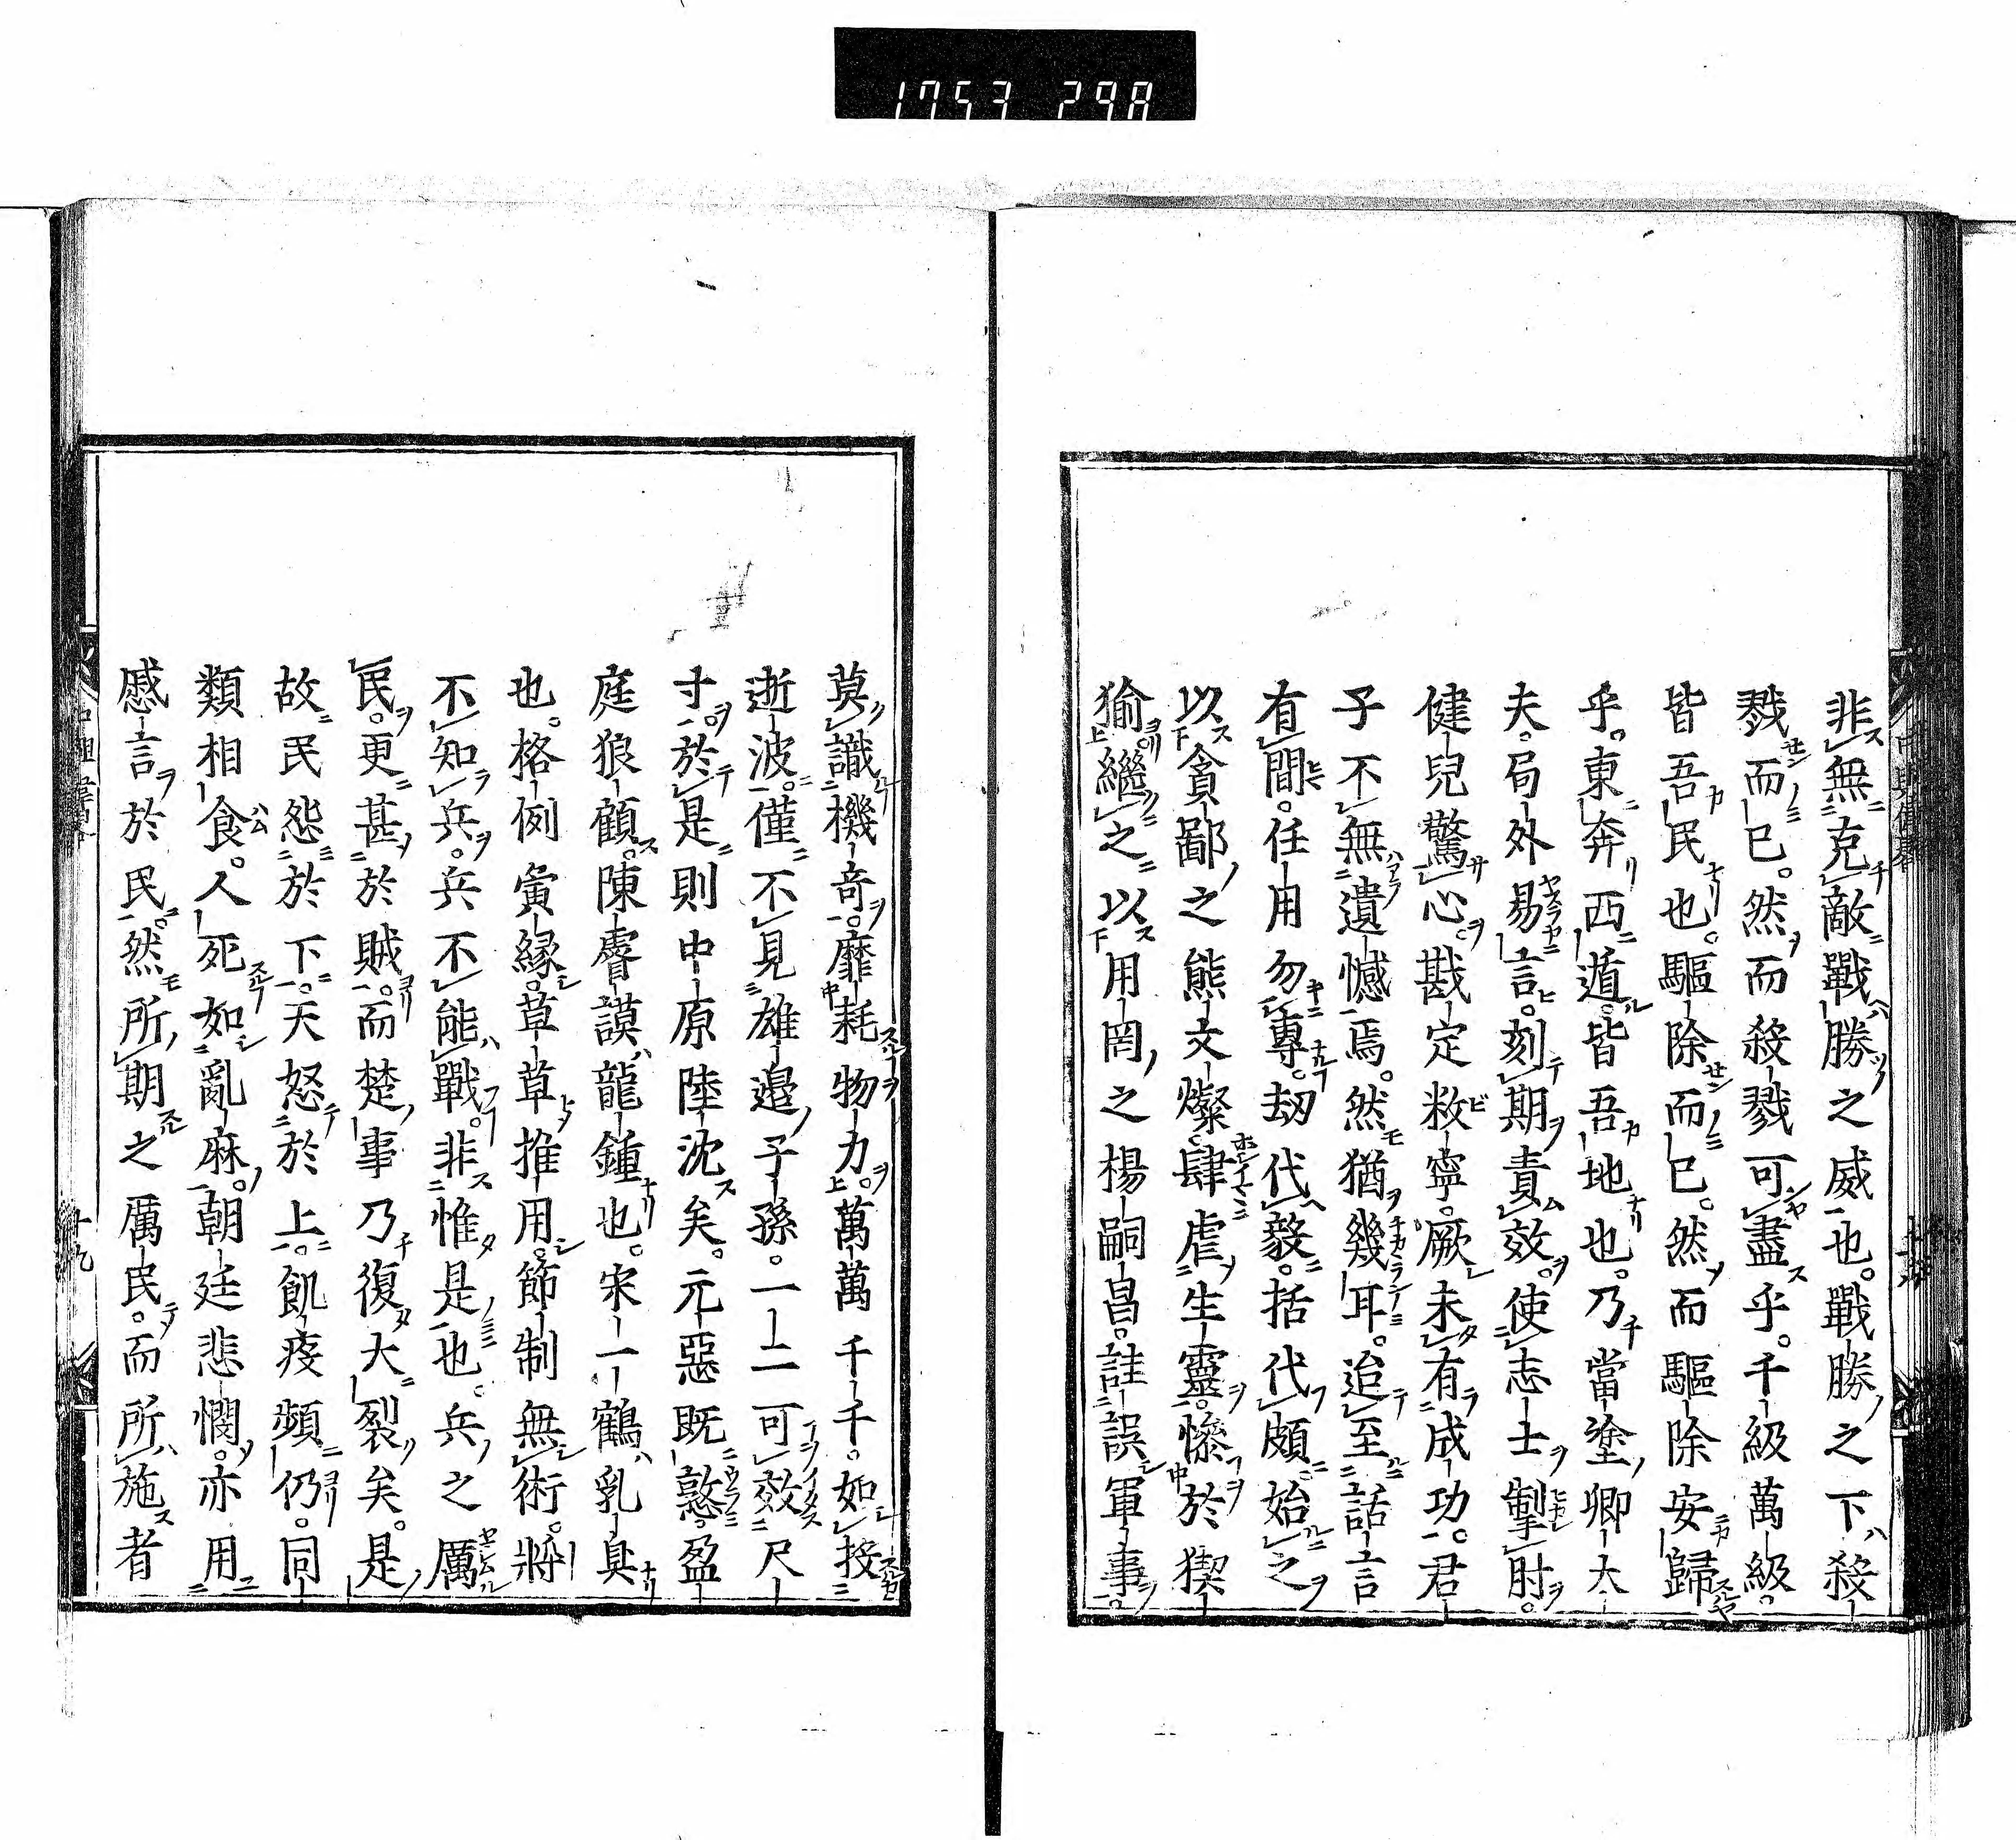 1753 298
非無克敵戰勝之威也。戰勝之下殺
戮而已。然而殺戮可盡乎。千級萬級。
皆吾民也。驅除而已。然而驅除安歸
乎。東奔西遁。皆吾地也。乃當塗卿大
夫。局外易言。刻期責效。使志士掣肘。
健兒驚心。戡定敉寧。厥未有成功。君
子不無遺憾焉。然猶幾耳。迨至話言
有間。任用勿專。刧代毅。括代頗。始之
以貪鄙之熊文燦。肆虐生靈。慘於猰
㺄。繼之以用罔之楊嗣昌。詿誤軍事。
莫識機奇。靡耗物力。萬萬千千。如投
逝波。僅不見雄邉子孫。一一可效尺
寸。於是則中原陸沈矣。元惡既憝。盈
庭狼顧。陳睿謨龍鍾也。宋一鶴乳臭
也。格例夤緣。草草推用。節制無術。將
不知兵。兵不能戰。非惟是也。兵之厲
民。更甚於賊。而楚事乃復大裂矣。是
故民怨於下。天怒於上。飢疫頻仍。同
類相食。人死如亂麻。朝廷悲憫。亦用
慼言於民。然所期之厲民。而所施者
十九